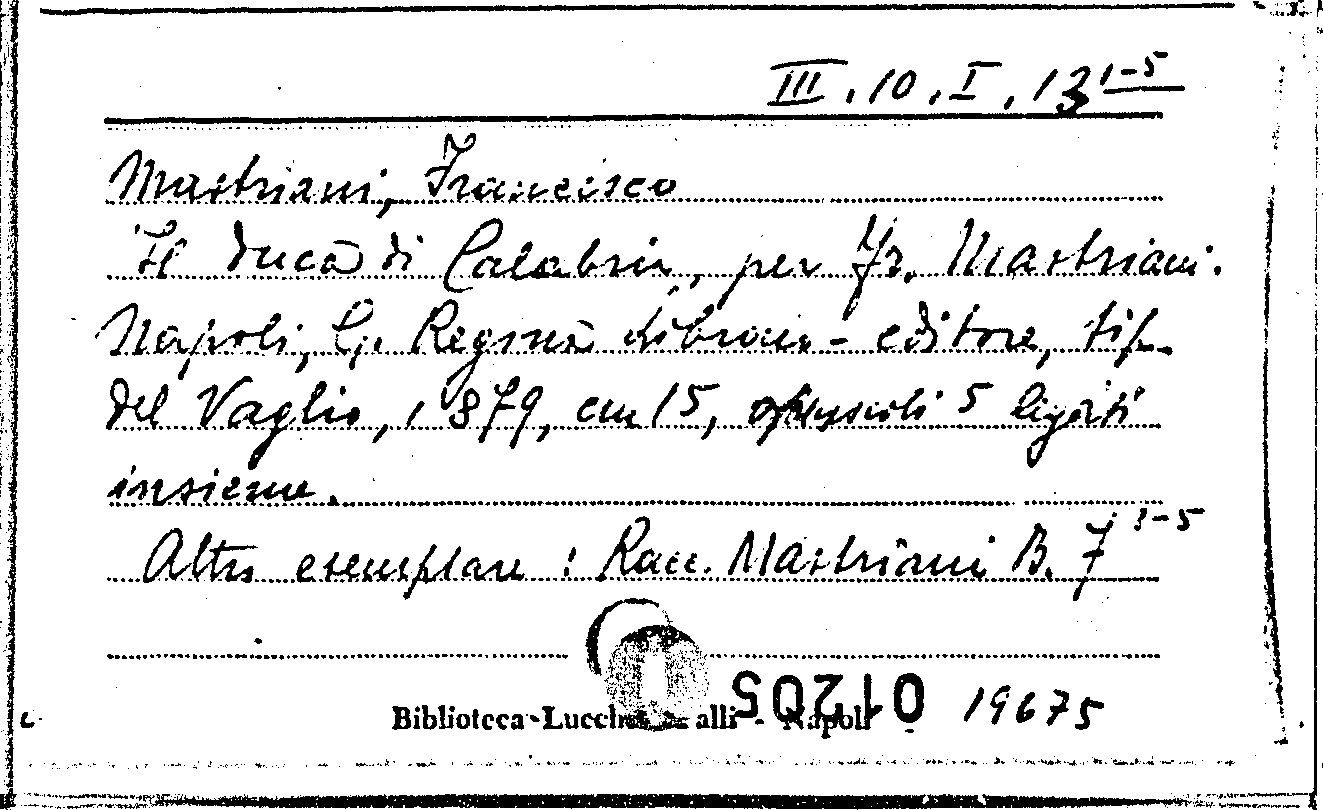 III.10.I.13 1-5
Mastriani, Francesco
Il duca di Calabria, per Fr. Mastriani.
Napoli, G. Regina Libraio-editore, tip.
del Vaglio, 1879, cm 15, opuscoli 5 legati
insieme.
Altro esemplare: Racc. Mastriani B. 7 1-5
Biblioteca - Lucchesi Palli - Napoli
01205 19675